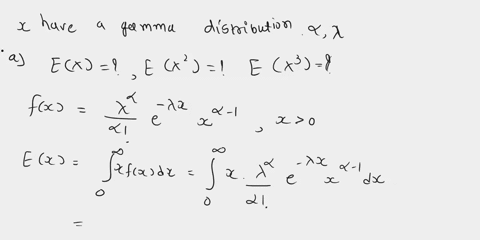 x have a gamma distribution α, λ
a) E(x) = ?, E(x²) = ! E(x³) = ?
f(x) = λ^α / α! e^{-λx} x^{α-1}, x>0
E(x) = ∫₀^∞ x f(x) dx = ∫₀^∞ x. λ^α / α! e^{-λx} x^{α-1} dx
=